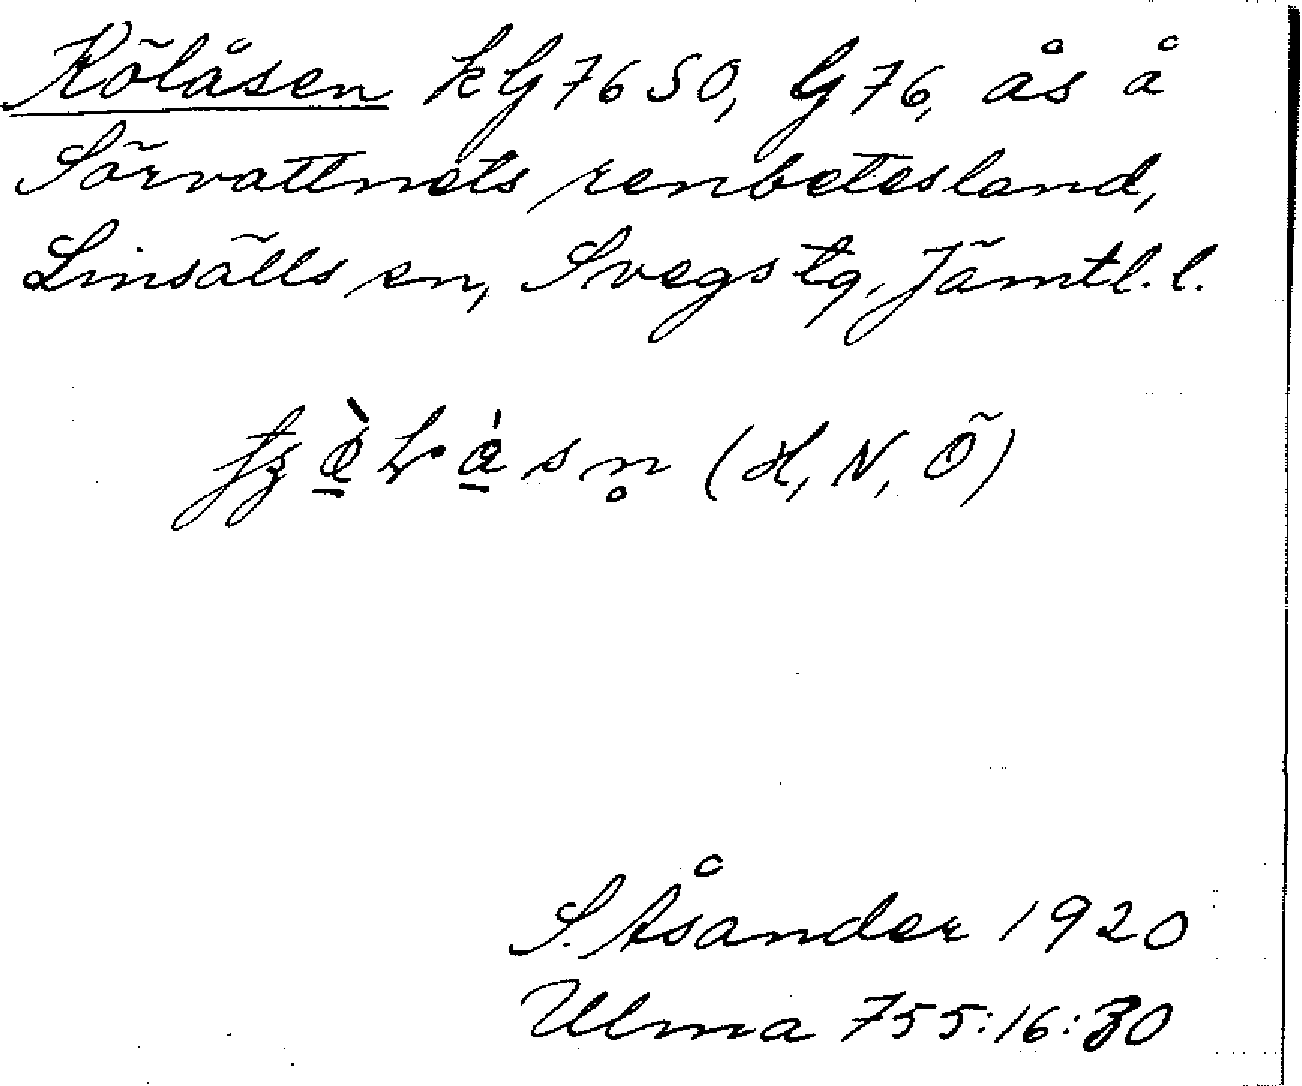 Kölåsen kG 76 SO, G 76, ås å
Sörvattnets renbetesland,
Linsälls sn, Svegs tg, Jämtl. l.
(H, N, Ö)
S. Åsander 1920
Ulma 755:16:30